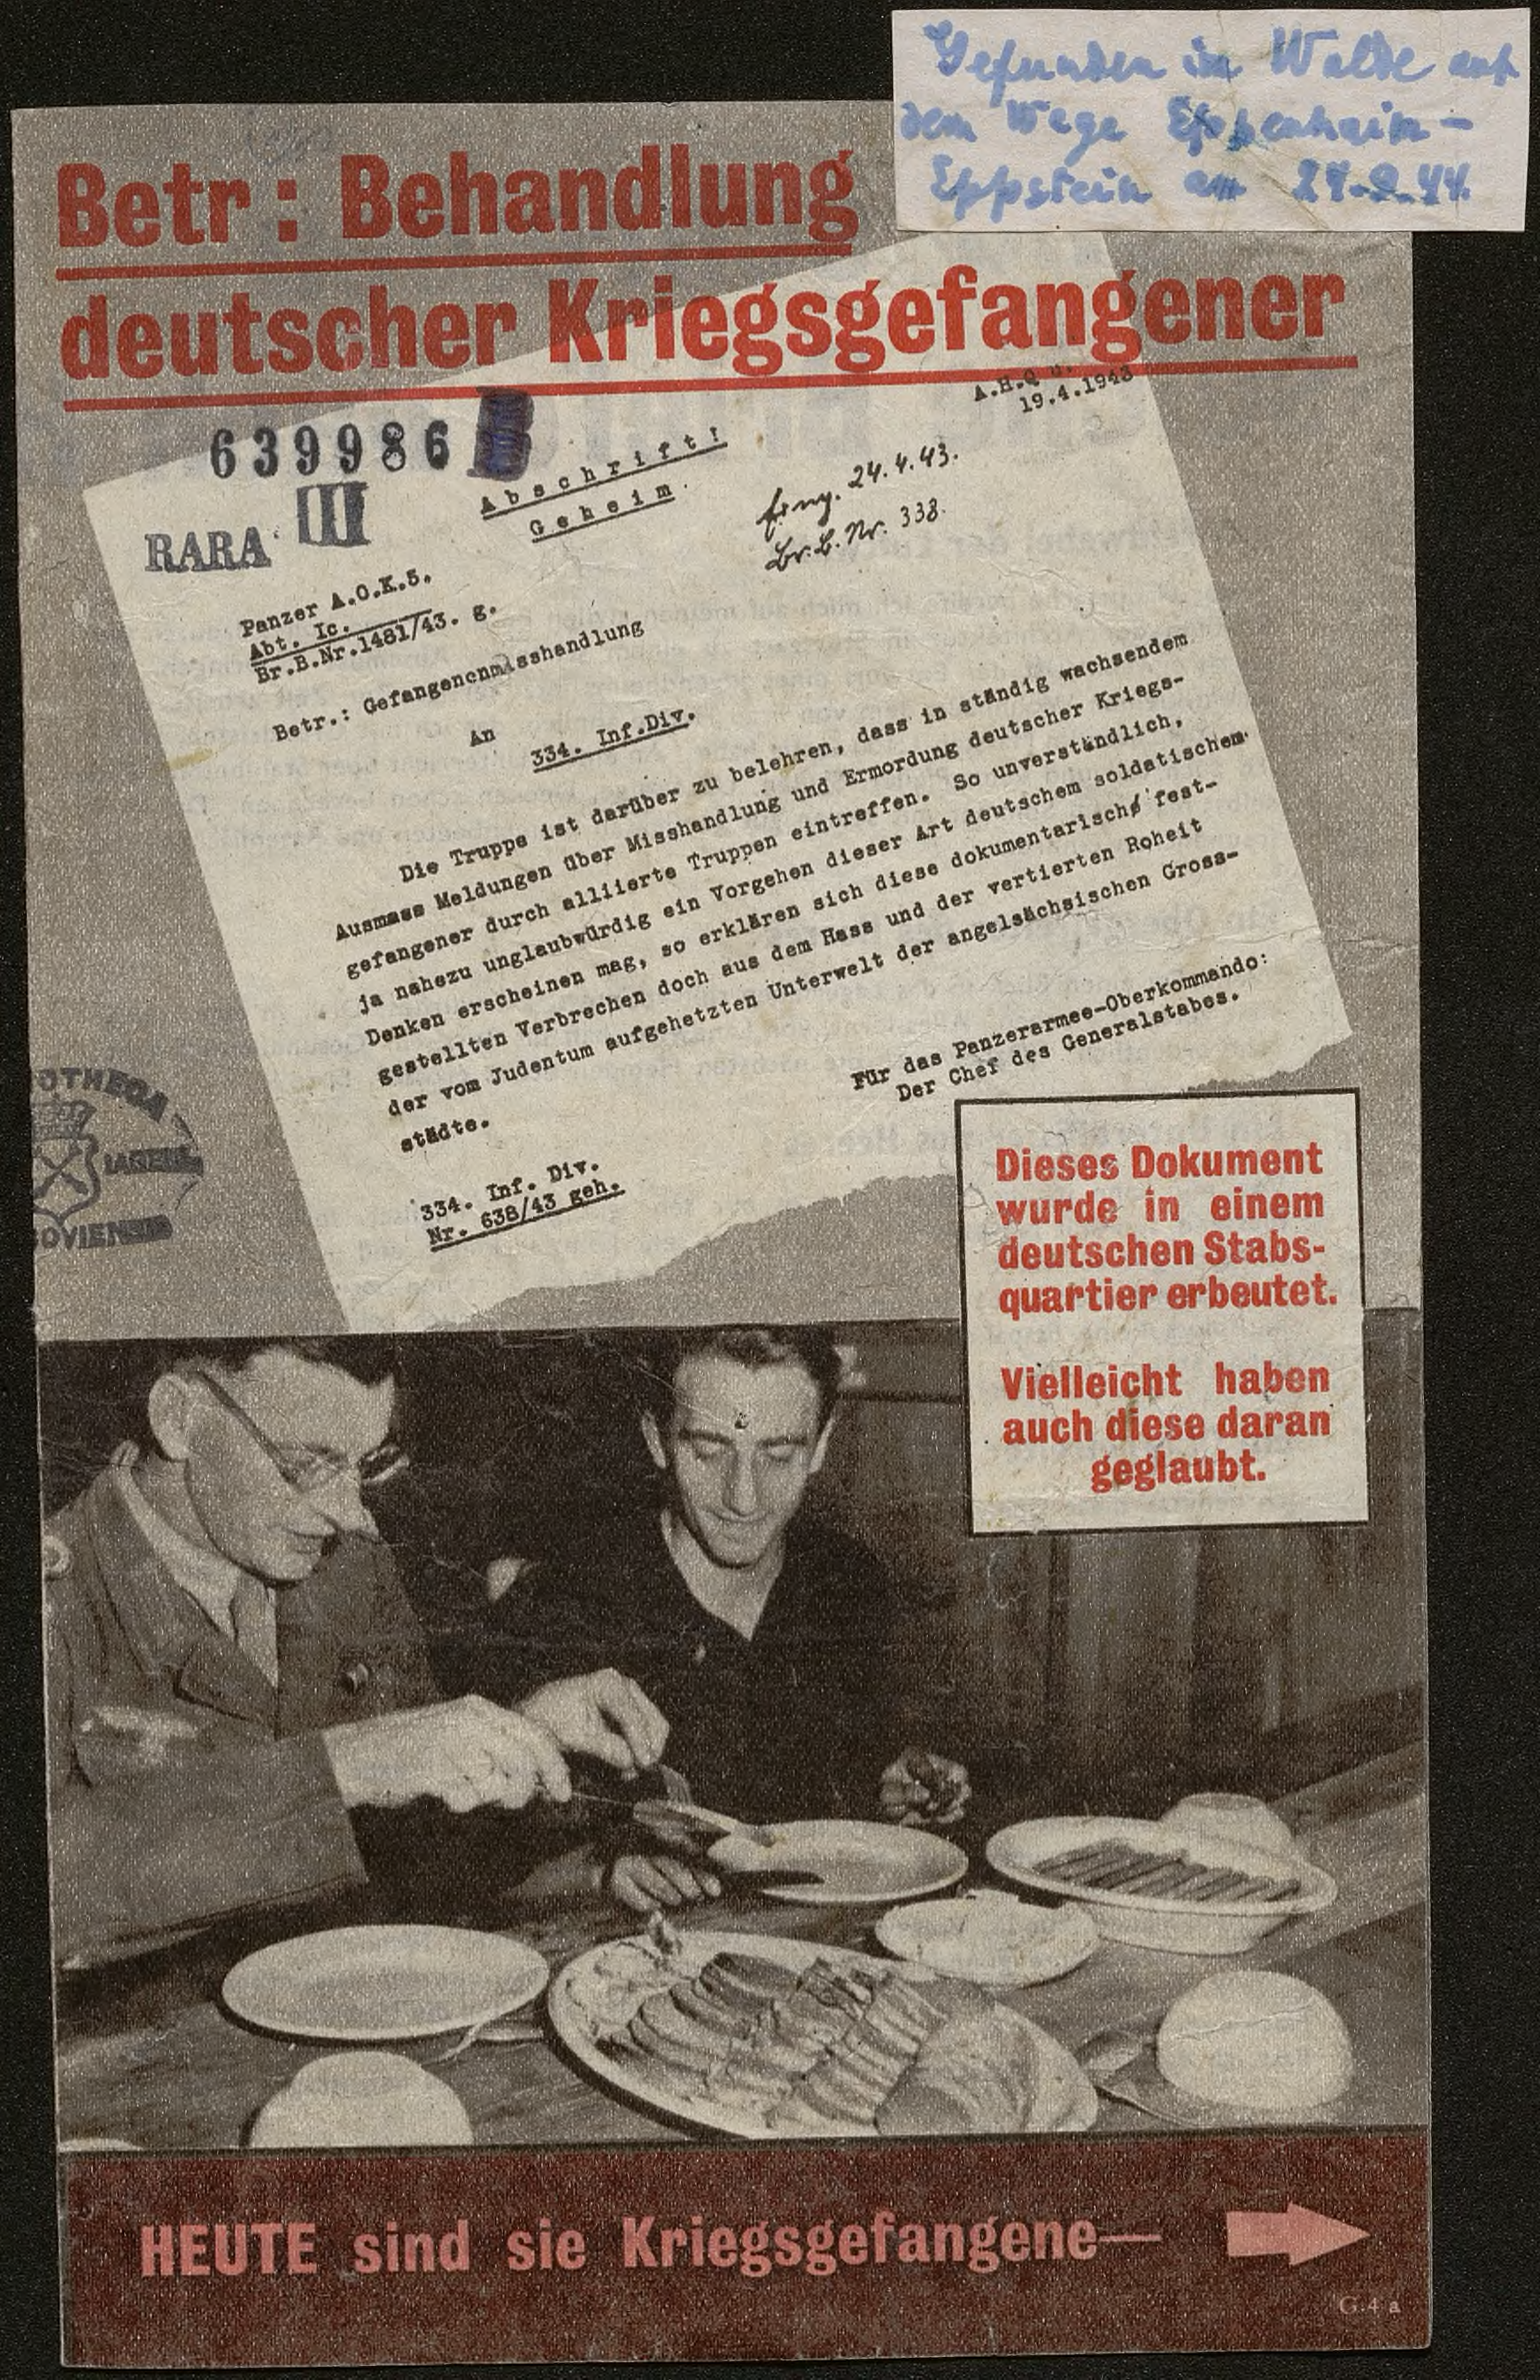 Gefunden im Walde auf
dem Wege Eppenhain-
Eppstein am 24.9.44.
Betr: Behandlung
deutscher Kriegsgefangener
A.H.Q u.
19.4.1943
639986
Abschrift!
Geheim.
24.4.43.
Br.B.Nr. 338.
RARA III
Panzer A.O.K.5.
Abt. Ic.
Br.B.Nr.1481/43. g.
Betr.: Gefangenenmisshandlung
An
334. Inf.Div.
Die Truppe ist darüber zu belehren, dass in ständig wachsendem
Ausmass Meldungen über Misshandlung und Ermordung deutscher Kriegs-
gefangener durch alliierte Truppen eintreffen. So unverständlich,
ja nahezu unglaubwürdig ein Vorgehen dieser Art deutschem soldatischem
Denken erscheinen mag, so erklären sich diese dokumentarisch fest-
gestellten Verbrechen doch aus dem Hass und der vertierten Roheit
der vom Judentum aufgehetzten Unterwelt der angelsächsischen Gross-
städte.
Für das Panzerarmee-Oberkommando:
Der Chef des Generalstabes.
334. Inf. Div.
Nr. 638/43 geh.
Dieses Dokument
wurde in einem
deutschen Stabs-
quartier erbeutet.
Vielleicht haben
auch diese daran
geglaubt.
HEUTE sind sie Kriegsgefangene—
G.4 a